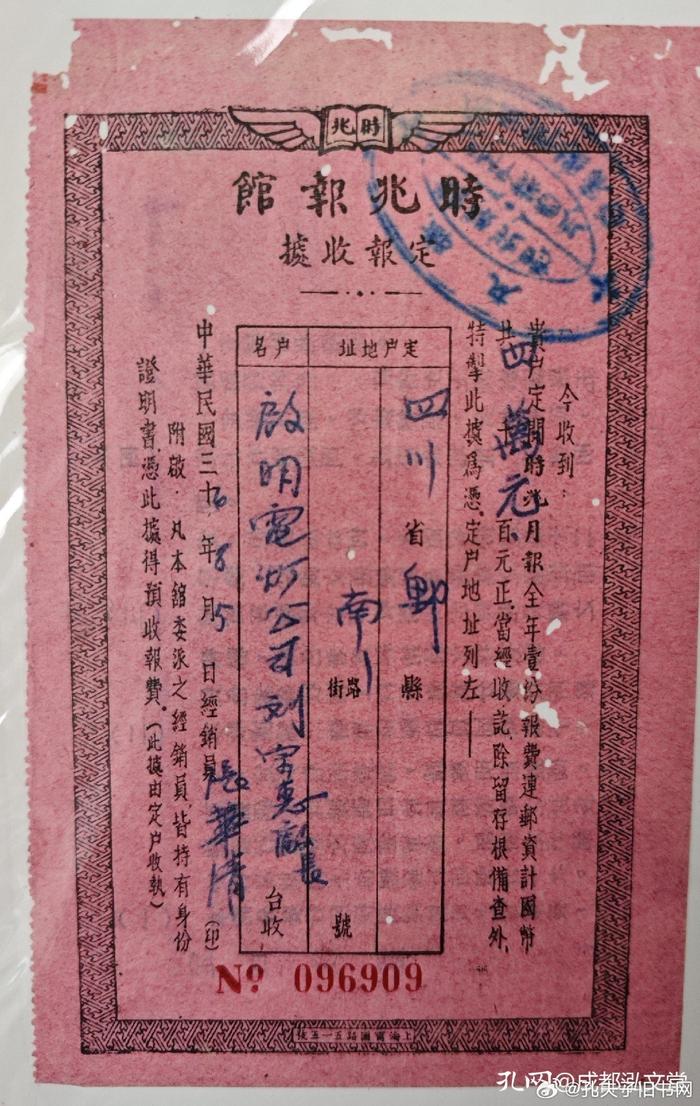 時兆
時兆報館
定報收據
今收到：
貴戶定閱時兆月報全年壹份報費連郵資計國幣
共四萬元 千 百元正，當經收訖，除留存根備查外，
特掣此據爲憑，定戶地址列左——
定戶地址
戶名
四川省郫縣
南 街路 號
啟明電灯公司刘宗惠厰長 台收
中華民國三十六年8月5日經銷員張華清（印）
附啟．凡本館委派之經銷員，皆持有身份
證明書，憑此據得預收報費。（此據由定戶收執）
No. 096909
上海甯國路五一五號
孔网@成都泓文堂
@孔夫子旧书网